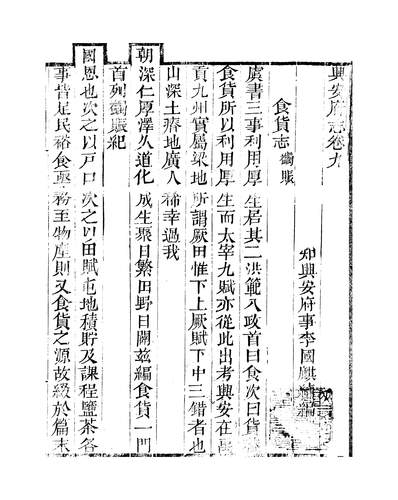 興安府志卷九
知興安府事李國麒
食貨志 蠲賑
虞書三事利用厚生居其二洪範八政首曰食次曰貨
食貨所以利用厚生而太宰九賦亦從此出考興安在禹
貢九州實屬梁地所謂厥田惟下上厥賦下中三錯者也
山深土瘠地廣人稀幸過我
朝深仁厚澤久道化成生聚日繁田野日闢茲編食貨一門
首列蠲賑紀
國恩也次之以戶口次之以田賦屯地積貯及課程鹽茶各
事皆足民裕食要務至物產則又食貨之源故綴於篇末